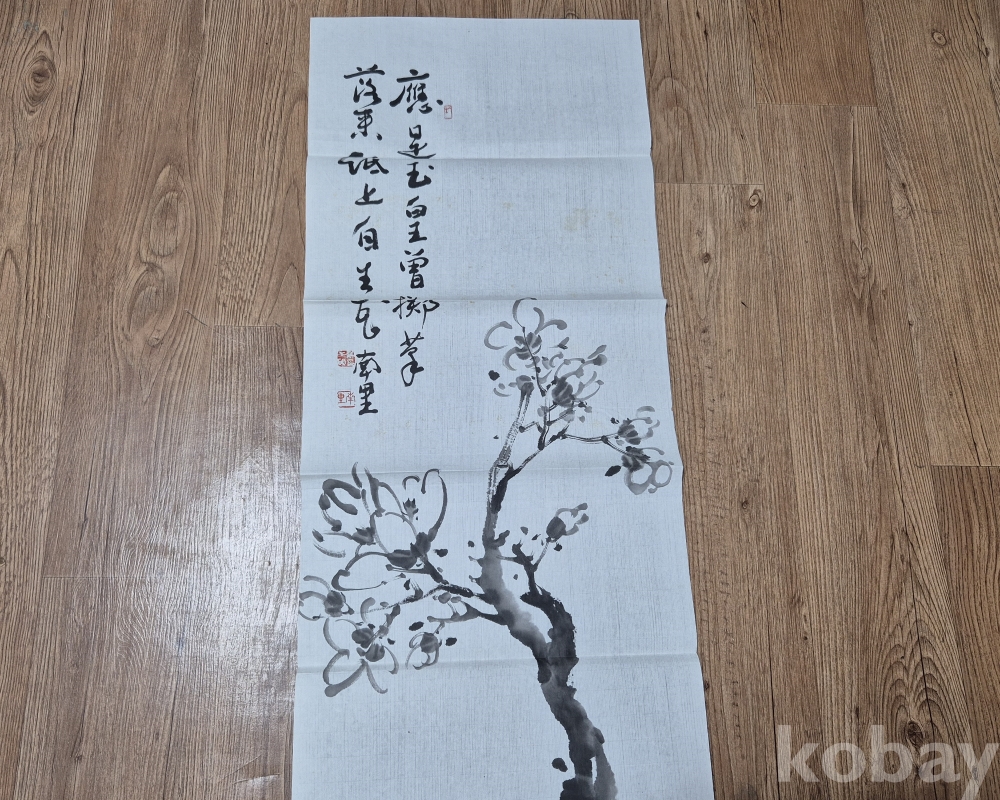 應是玉皇曾擲筆
落來紙上自生花 南里
kobay